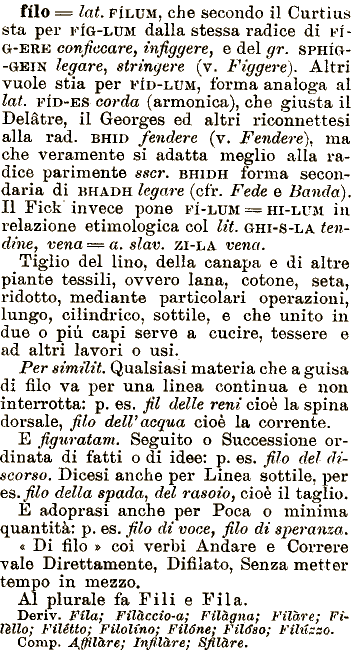 fílo = lat. FÍLUM, che secondo il Curtius
sta per FÍG-LUM dalla stessa radice di FÍ-
G-ERE conficcare, infiggere, e del gr. SPHÍG-
-GEIN legare, stringere (v. Figgere). Altri
vuole stia per FÍD-LUM, forma analoga al
lat. FÍD-ES corda (armonica), che giusta il
Delâtre, il Georges ed altri riconnettesi
alla rad. BHID fendere (v. Fendere), ma
che veramente si adatta meglio alla ra-
dice parimente sscr. BHIDH forma secon-
daria di BHADH legare (cfr. Fede e Banda).
Il Fick invece pone FÍ-LUM = HI-LUM in
relazione etimologica col lit. GHI-S-LA ten-
dine, vena = a. slav. ZI-LA vena.
Tiglio del lino, della canapa e di altre
piante tessili, ovvero lana, cotone, seta,
ridotto, mediante particolari operazioni,
lungo, cilindrico, sottile, e che unito in
due o piú capi serve a cucire, tessere e
ad altri lavori o usi.
Per similit. Qualsiasi materia che a guisa
di filo va per una linea continua e non
interrotta: p. es. fil delle reni cioè la spina
dorsale, filo dell'acqua cioè la corrente.
E figuratam. Seguito o Successione or-
dinata di fatti o di idee: p. es. filo del di-
scorso. Dicesi anche per Linea sottile, per
es. filo della spada, del rasoio, cioè il taglio.
E adoprasi anche per Poca o minima
quantità: p. es. filo di voce, filo di speranza.
« Di filo » coi verbi Andare e Correre
vale Direttamente, Difilato, Senza metter
tempo in mezzo.
Al plurale fa Fili e Fila.
Deriv. Fila; Filàccio-a; Filàgna; Filàre; Fi-
lèllo; Filétto; Filolíno; Filóne; Filóso; Filúzzo.
Comp. Affilàre; Infilàre; Sfilàre.